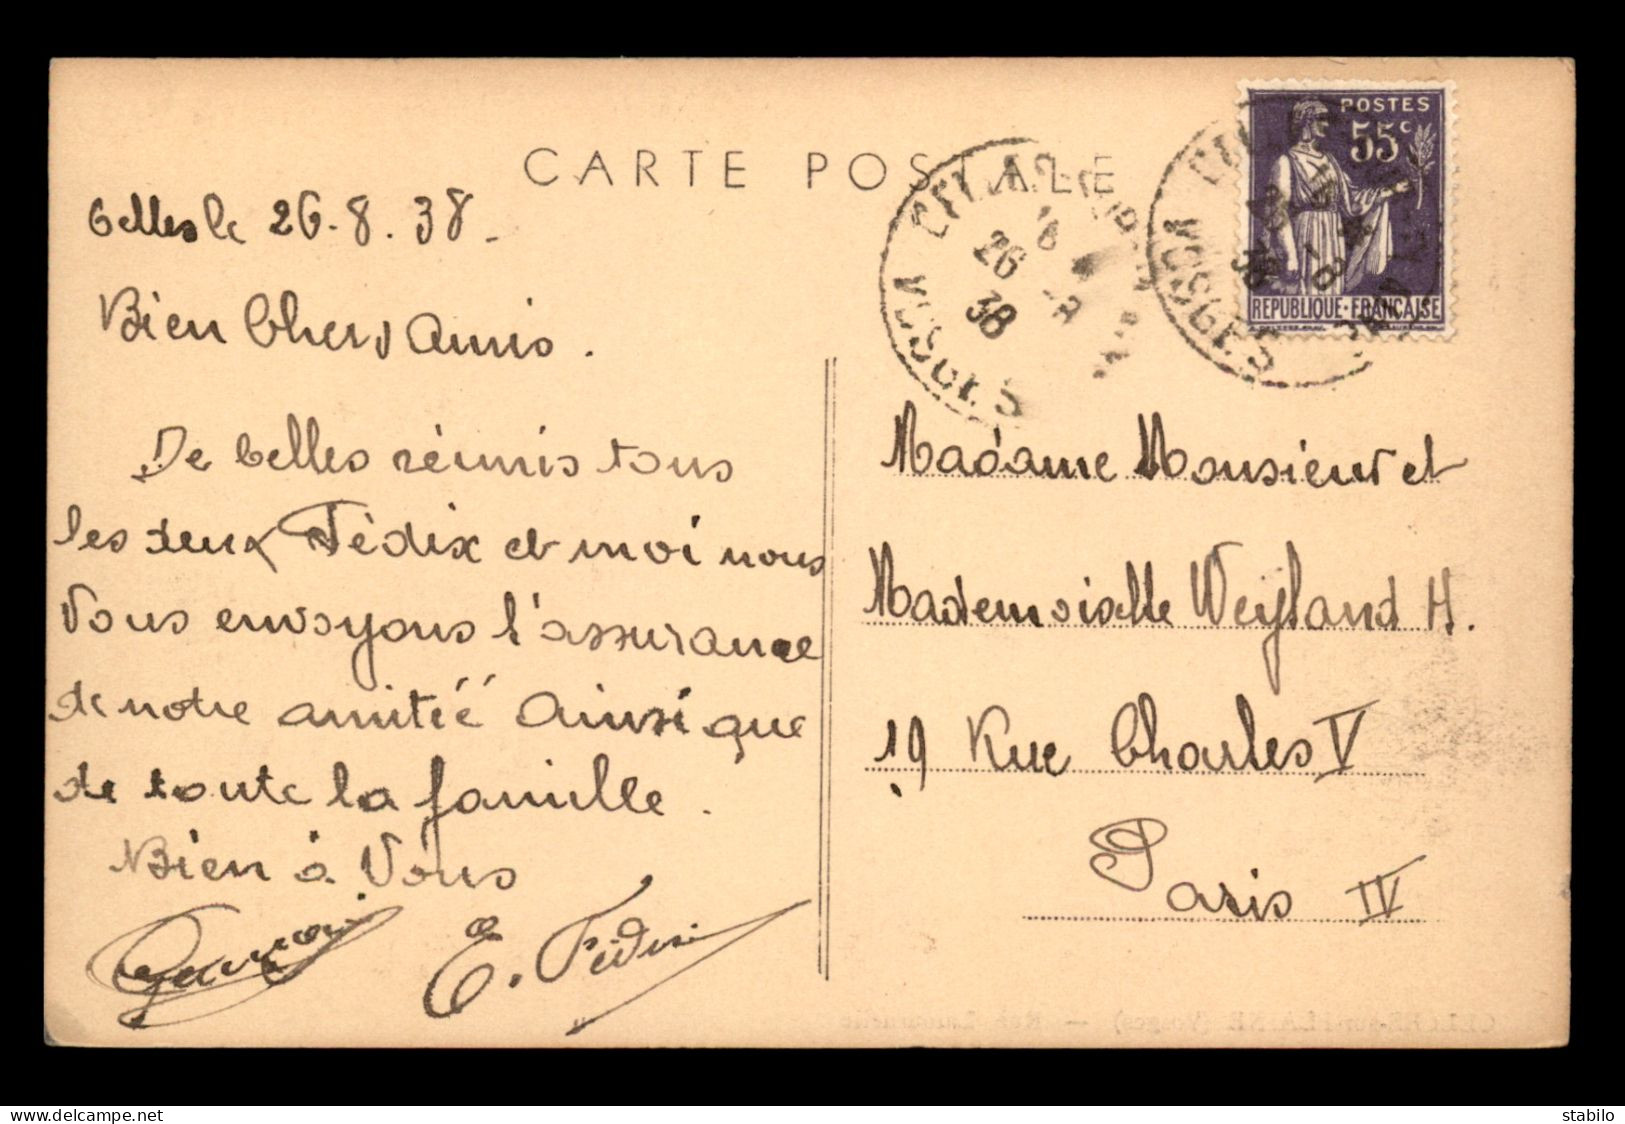 CARTE POSTALE
Celles le 26.8.38.
Bien Chers Amis.
De Celles réunis tous
les deux Fédix et moi nous
Vous envoyons l'assurance
de notre amitié ainsi que
de toute la famille.
Bien à Vous
E. Fédix
POSTES
55c
REPUBLIQUE FRANCAISE
VOSGES
26 -8
38
VOSGES
38
Madame Monsieur et
Mademoiselle Weyland H.
19 Rue Charles V
Paris IV
stabilo